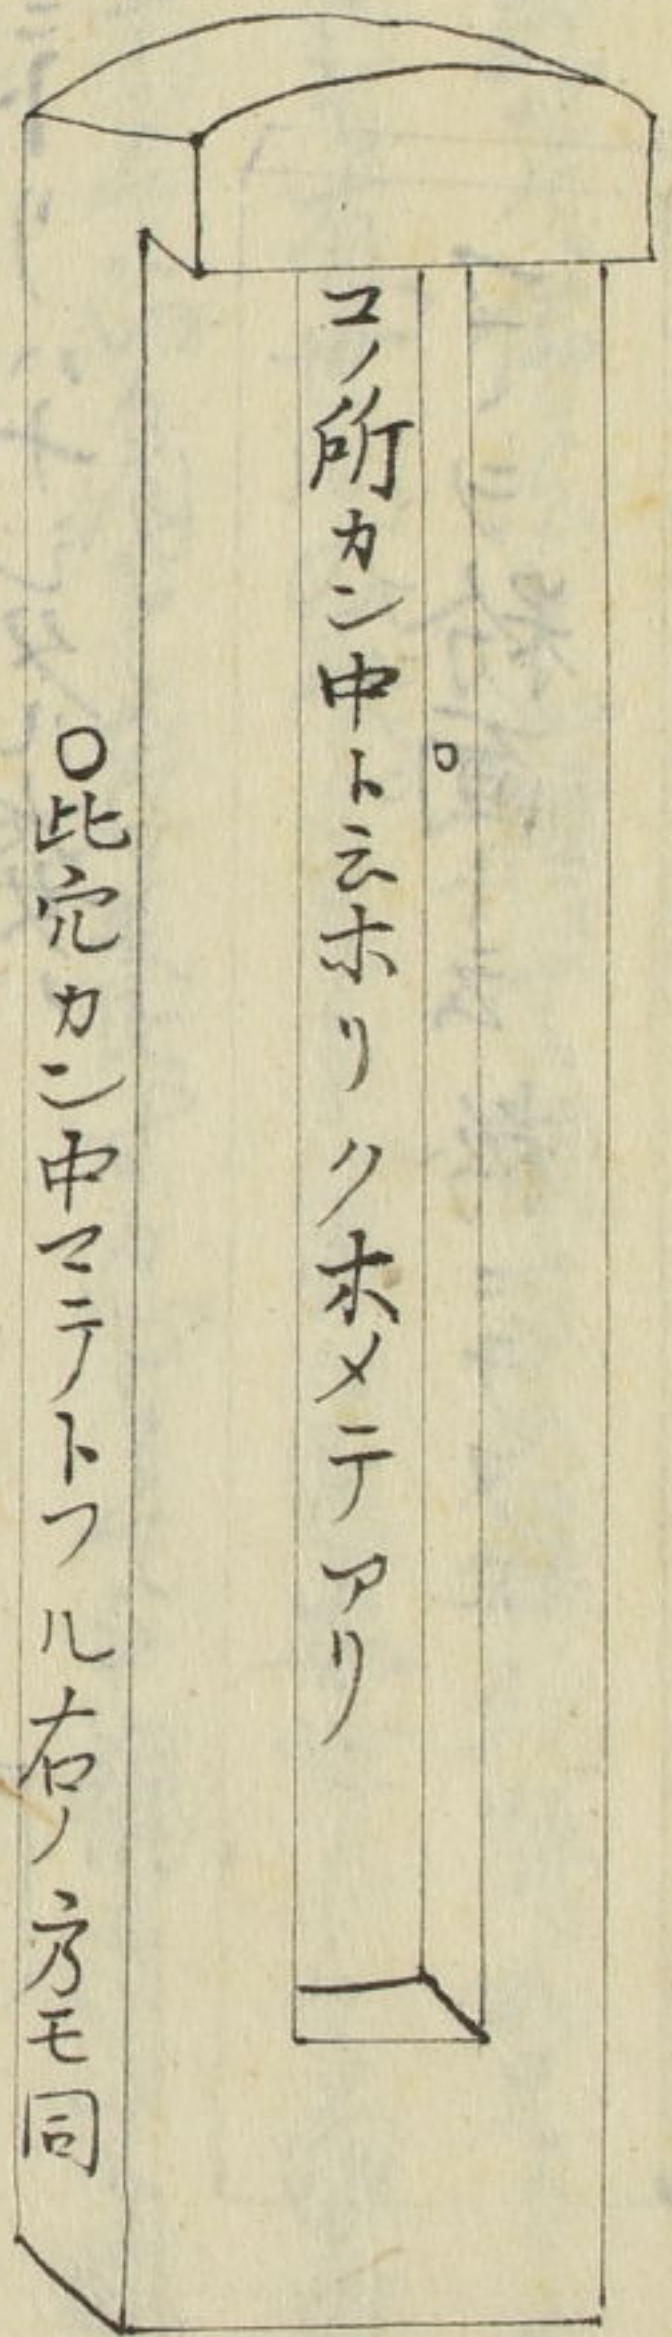 コノ所カン中ト云ホリクホメテアリ
○此穴カン中マテトフル右ノ方モ同